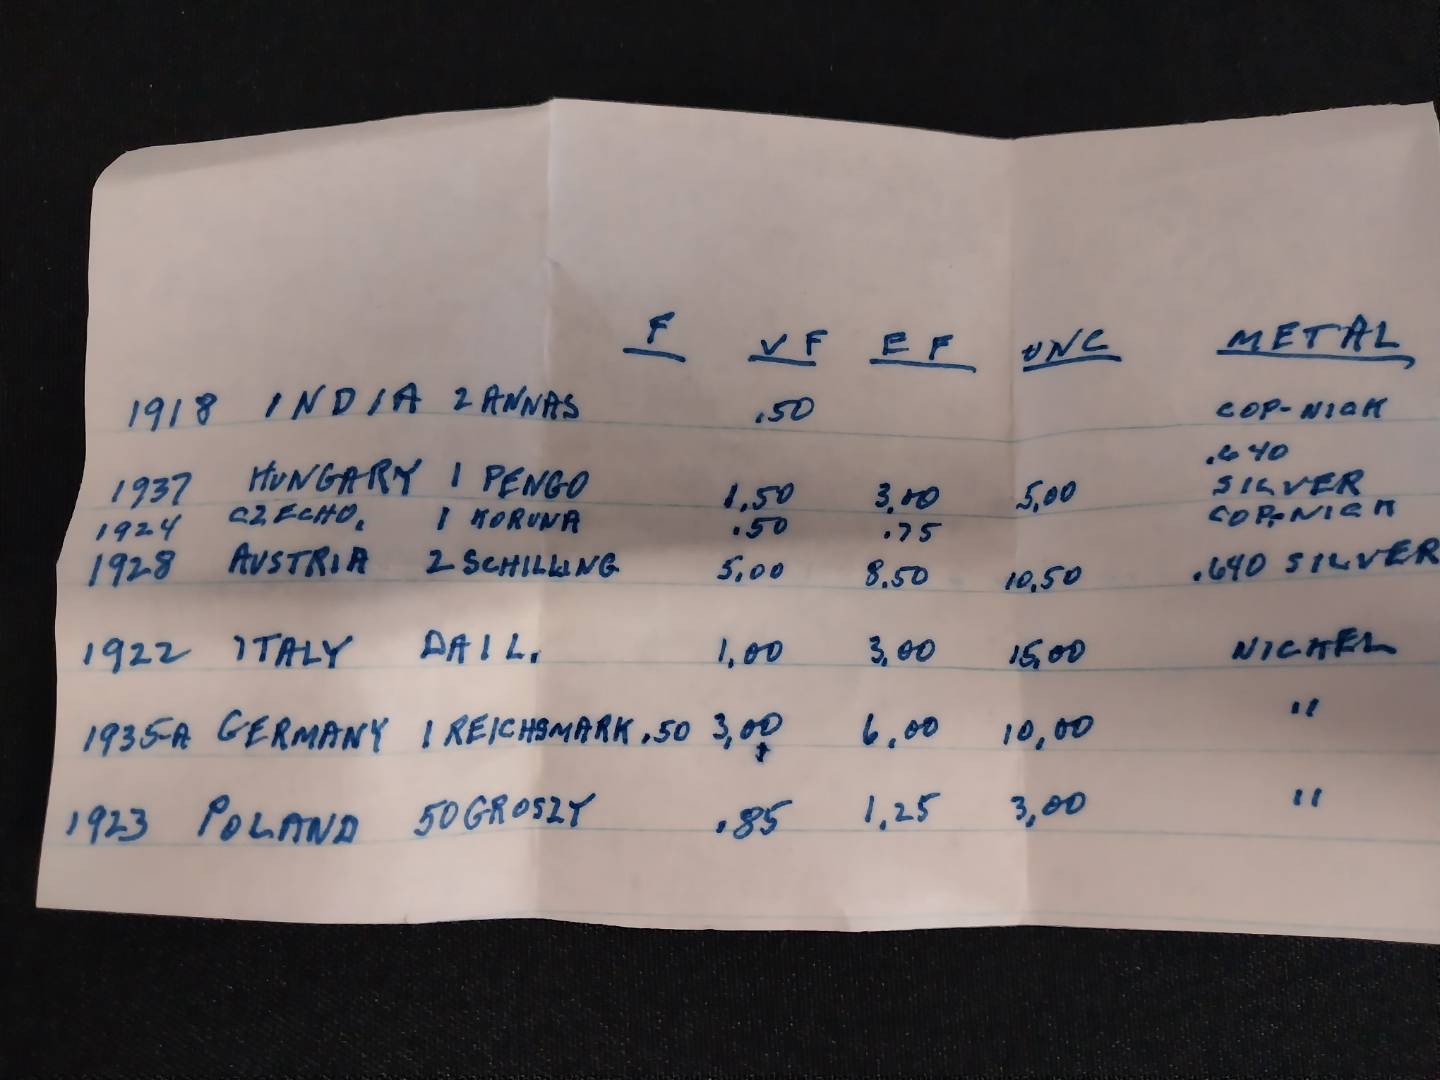 F VF EF UNC METAL
1918 INDIA 2 ANNAS .50 COP-NICK
.640
1937 HUNGARY 1 PENGO 1.50 3.00 5.00 SILVER
1924 CZECHO. 1 KORUNA .50 .75 COP-NICK
1928 AUSTRIA 2 SCHILLING 5.00 8.50 10.50 .640 SILVER
1922 ITALY 1.00 3.00 15.00 NICKEL
1935-A GERMANY 1 REICHSMARK .50 3.00 6.00 10.00 "
1923 POLAND 50 GROSZY .85 1.25 3.00 "